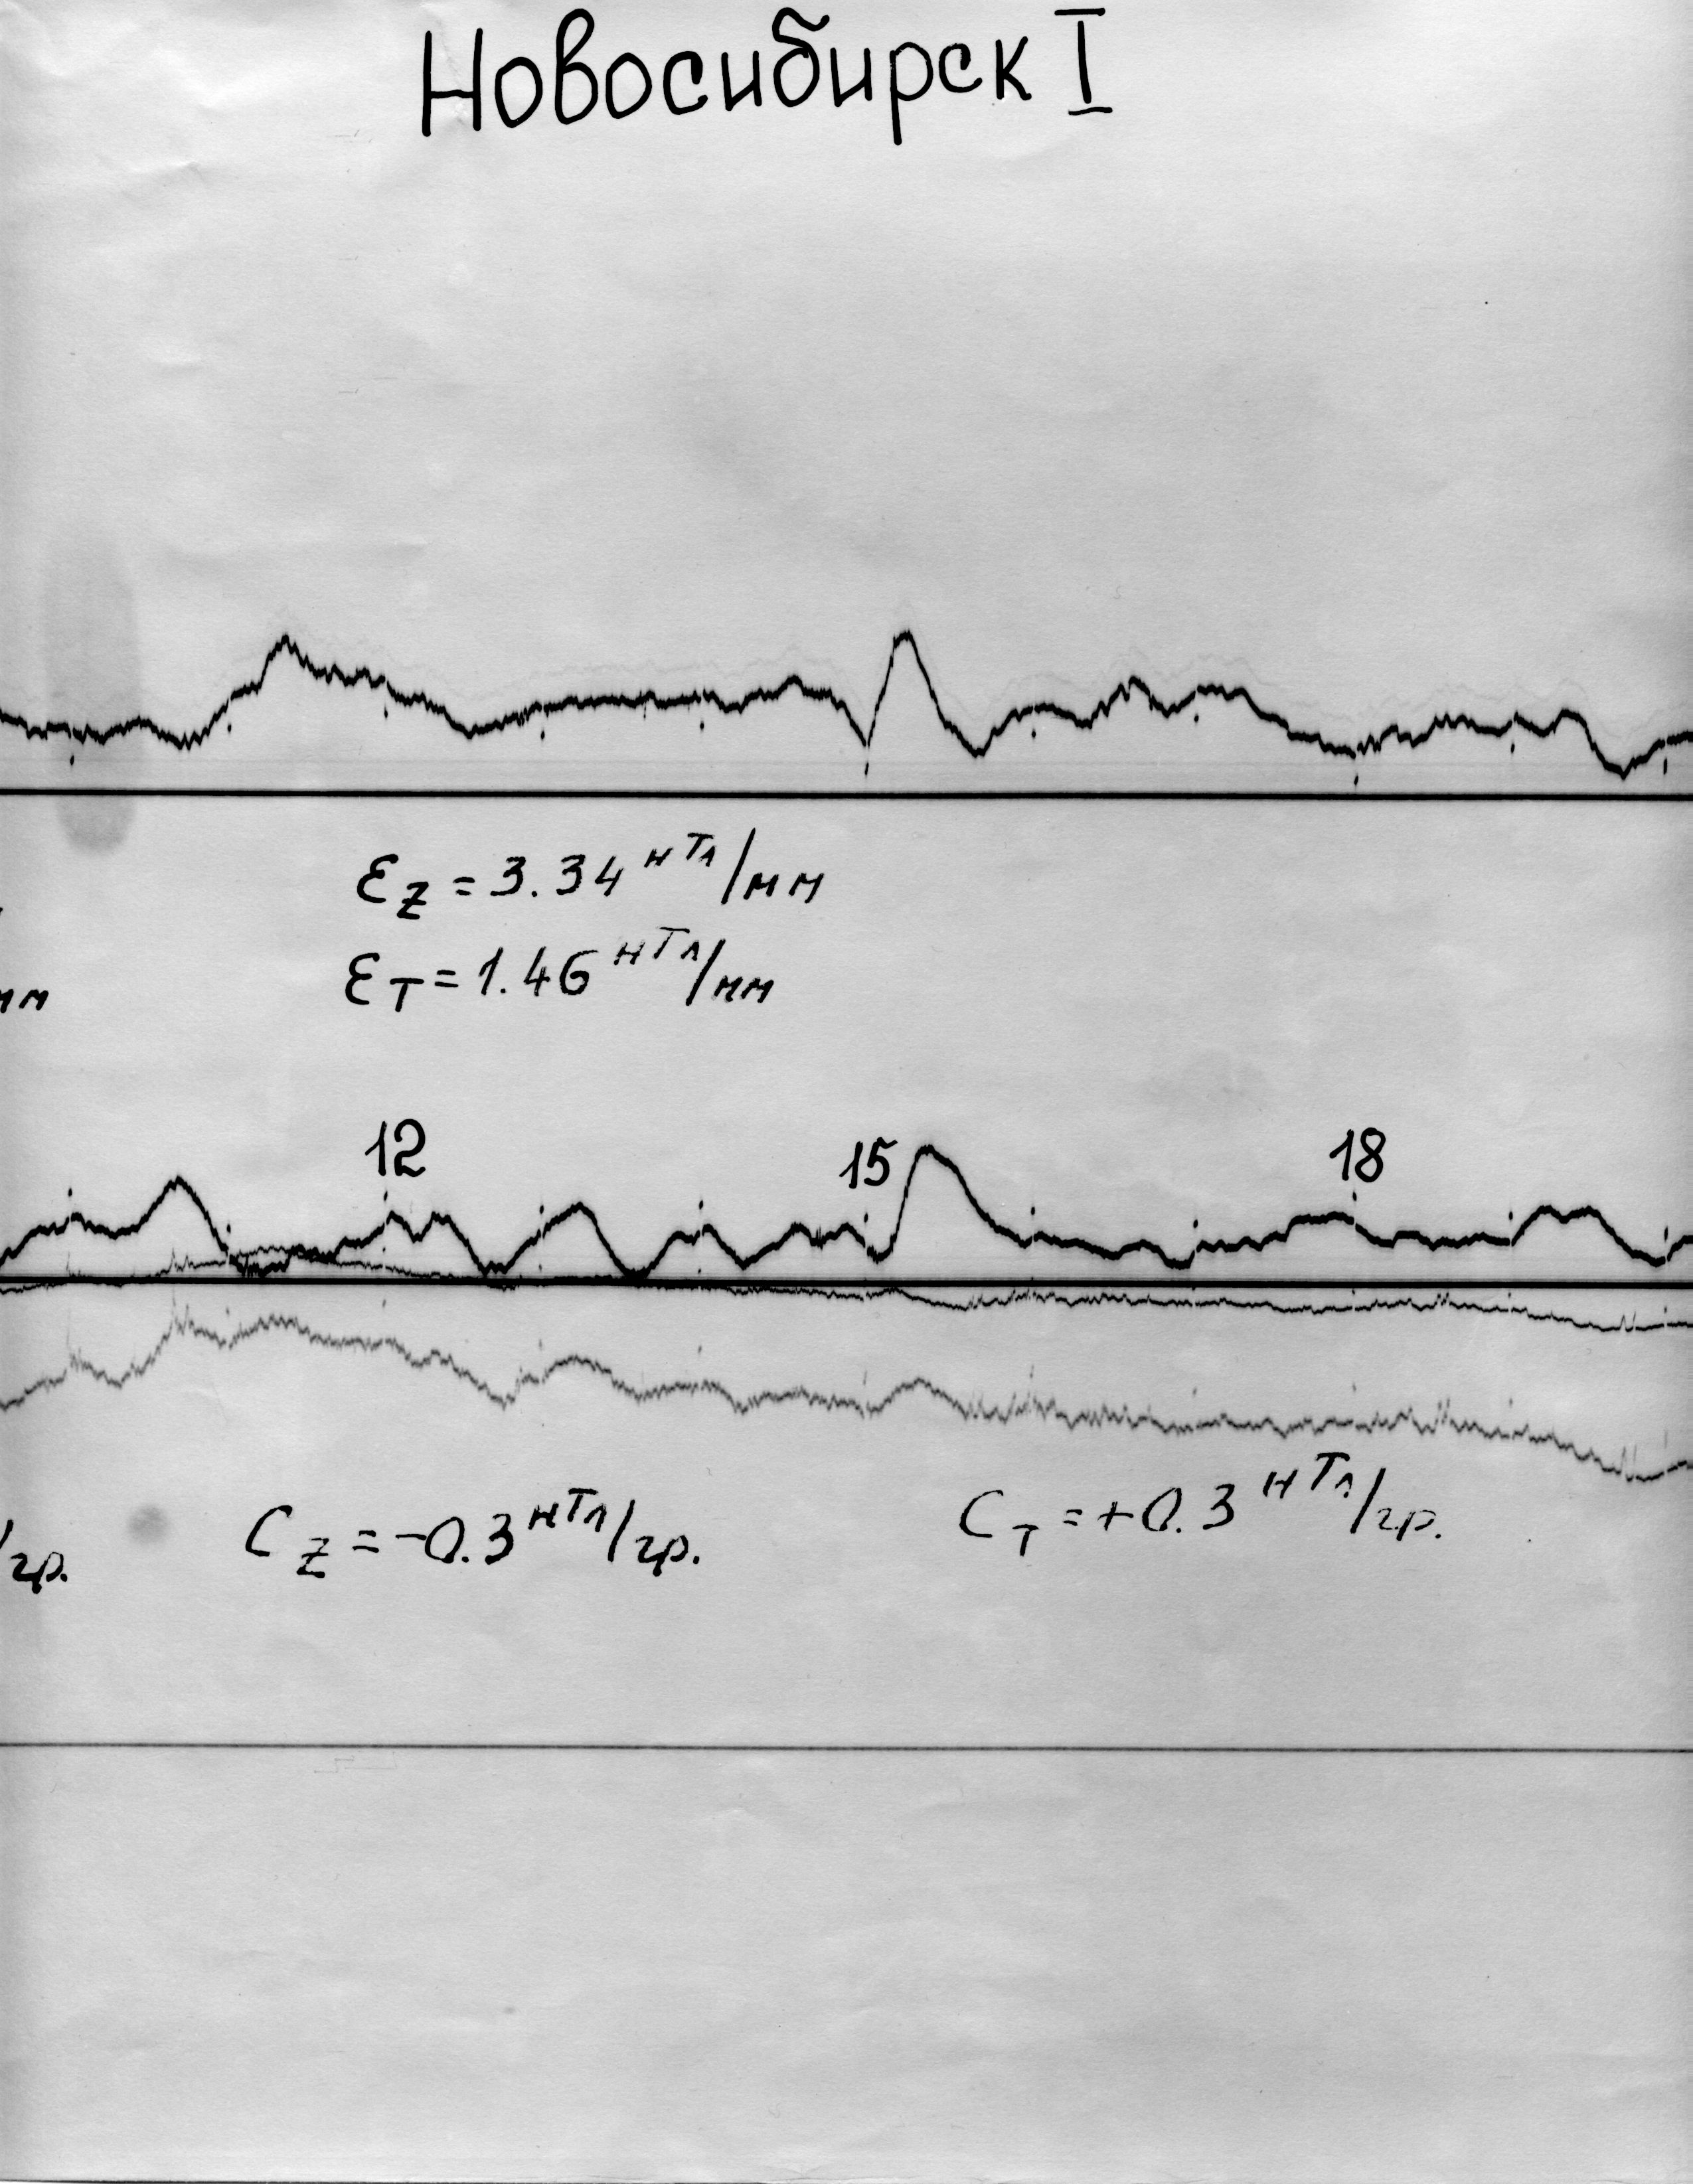 Новосибирск I
εz = 3.34 нТл/мм
мм
εT = 1.46 нТл/мм
12
15
18
/гр.
Cz = -0.3 нТл/гр.
CT = +0.3 нТл/гр.